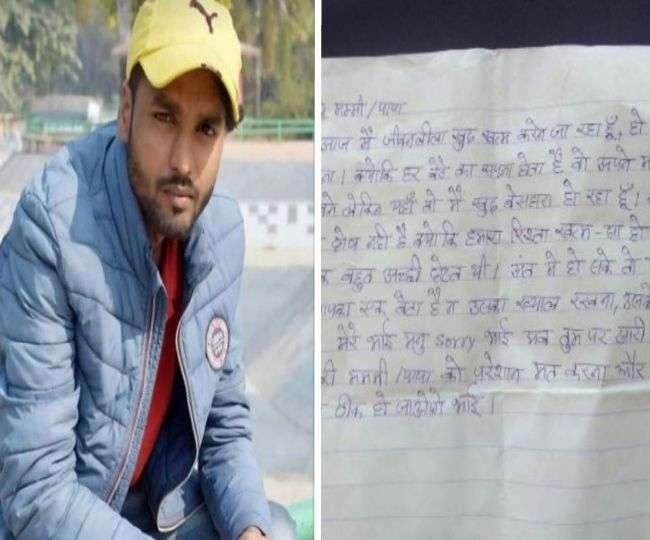 मम्मी/पापा
आज मैं जीवनलीला खुद खत्म करने जा रहा हूँ, हो
क्योंकि हर बेटे का सपना होता है वो अपने म
लेकिन यहाँ तो मैं खुद बेसहारा हो रहा हूँ।
दोष नही है क्योंकि हमारा रिश्ता खत्म-सा हो
बहुत अच्छी दोस्त थी। अंत मे हो सके तो
एक बेटा है न उसका ख्याल रखना, उसके
मेरे भाई मनु sorry भाई अब तुम पर सारी
मम्मी/पापा को परेशान मत करना और
ठीक हो जाओगे भाई।